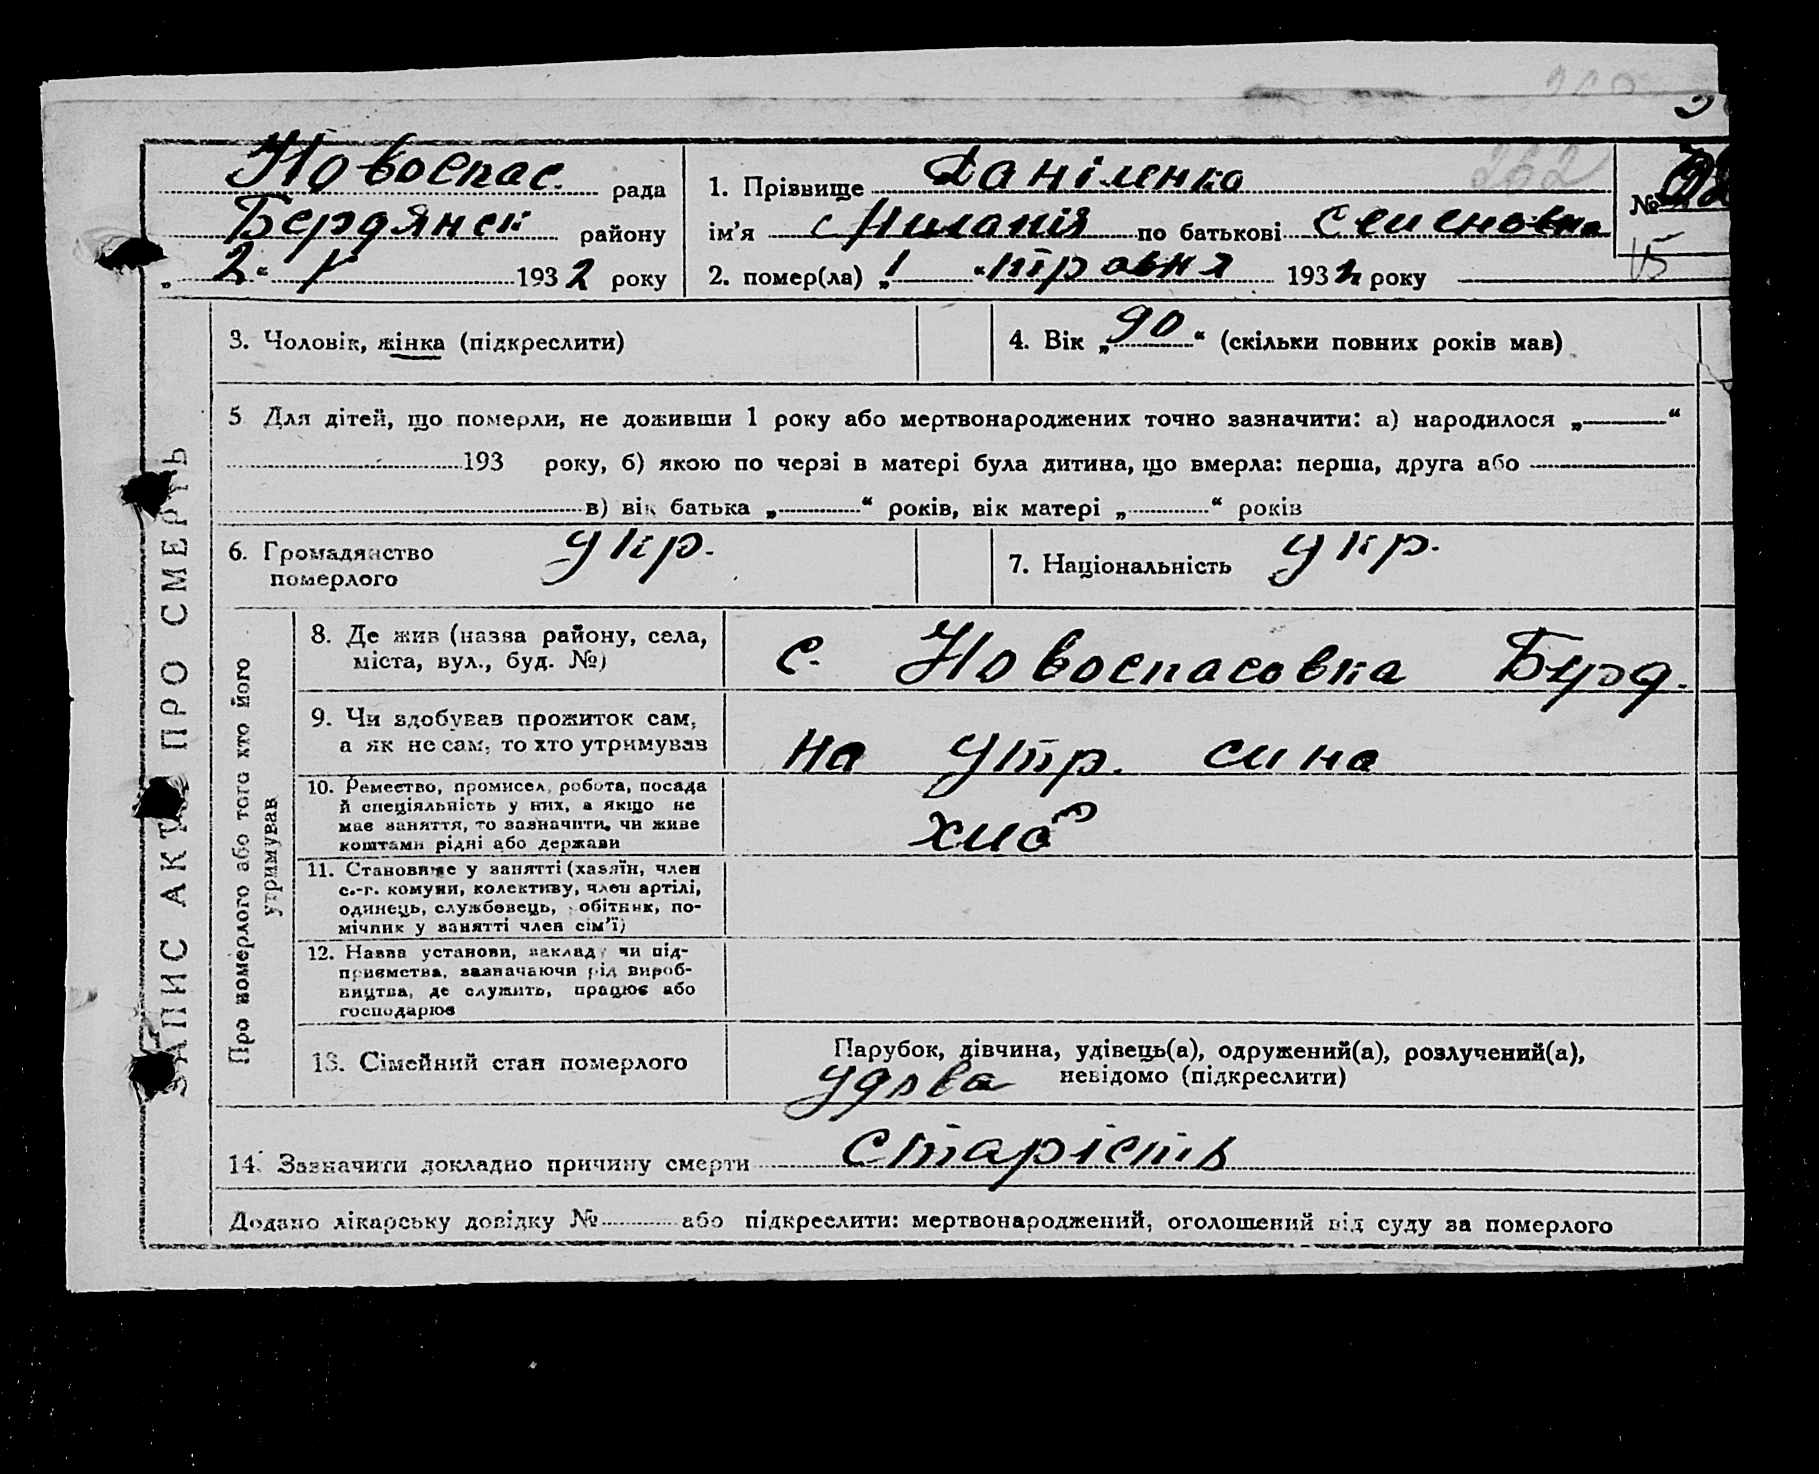 262
Новоспас. рада
Бердянск району
„2“ V 1932 року
1. Прізвище Даніленко
ім'я Миланія по батькові Семеновна
2. помер(ла) „1“ травня 1932 року
№
15
ЗАПИС АКТУ ПРО СМЕРТЬ
3. Чоловік, жінка (підкреслити)
4. Вік „90“ (скільки повних років мав)
5 Для дітей, що померли, не доживши 1 року або мертвонароджених точно зазначити: а) народилося „ “
193 року, б) якою по черзі в матері була дитина, що вмерла: перша, друга або
в) вік батька „ “ років, вік матері „ “ років
6. Громадянство
померлого укр.
7. Національність укр.
Про померлого або того хто його
утримував
8. Де жив (назва району, села,
міста, вул., буд. №)
с. Новоспасовка Берд.
9. Чи здобував прожиток сам,
а як не сам, то хто утримував
на утр. сина
10. Ремество, промисел, робота, посада
й спеціяльність у них, а якщо не
має заняття, то зазначити, чи живе
коштами рідні або держави
хліб
11. Становище у занятті (хазяїн, член
с.-г. комуни, колективу, член артілі,
одинець, службовець, робітник, по-
мічник у занятті член сім'ї)
12. Назва установи, закладу чи під-
приємства, зазначаючи рід вироб-
ництва, де служить, працює або
господарює
13. Сімейний стан померлого
Парубок, дівчина, удівець(а), одружений(а), розлучений(а),
невідомо (підкреслити)
удова
14. Зазначити докладно причину смерти старість
Додано лікарську довідку № або підкреслити: мертвонароджений, оголошений від суду за померлого